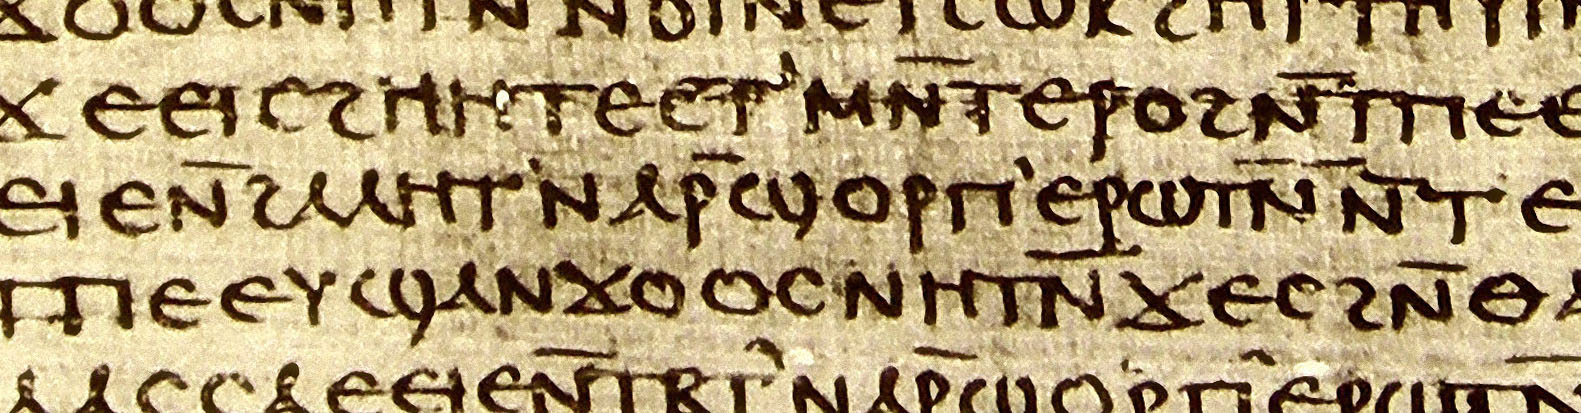 ϫⲟⲟⲥ ⲛⲏⲧⲛ̄ ⲛ̄ϭⲓ ⲛⲉⲧⲥⲱⲕ ϩⲏⲧ ⲧⲏⲩⲧⲛ̄
ϫⲉ ⲉⲓⲥϩⲏⲏⲧⲉ ⲉⲧ ⲙⲛ̄ⲧⲉⲣⲟ ϩⲛ̄ ⲧⲡⲉ ⲉ
ⲉⲓⲉ ⲛ̄ϩⲁⲗⲏⲧ ⲛⲁⲣ̄ ϣⲟⲣⲡ ⲉⲣⲱⲧⲛ̄ ⲛ̄ⲧⲉ
ⲧⲡⲉ ⲉⲩϣⲁⲛϫⲟⲟⲥ ⲛⲏⲧⲛ̄ ϫⲉ ⲥϩⲛ̄ ⲑⲁ
ⲗⲁⲥⲥⲁ ⲉⲉⲓⲉ ⲛ̄ⲧⲃⲧ ⲛⲁⲣ̄ ϣⲟⲣⲡ ⲉⲣⲱⲧⲛ̄